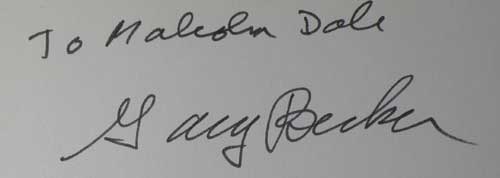 To Malcolm Dale
Gary Becker